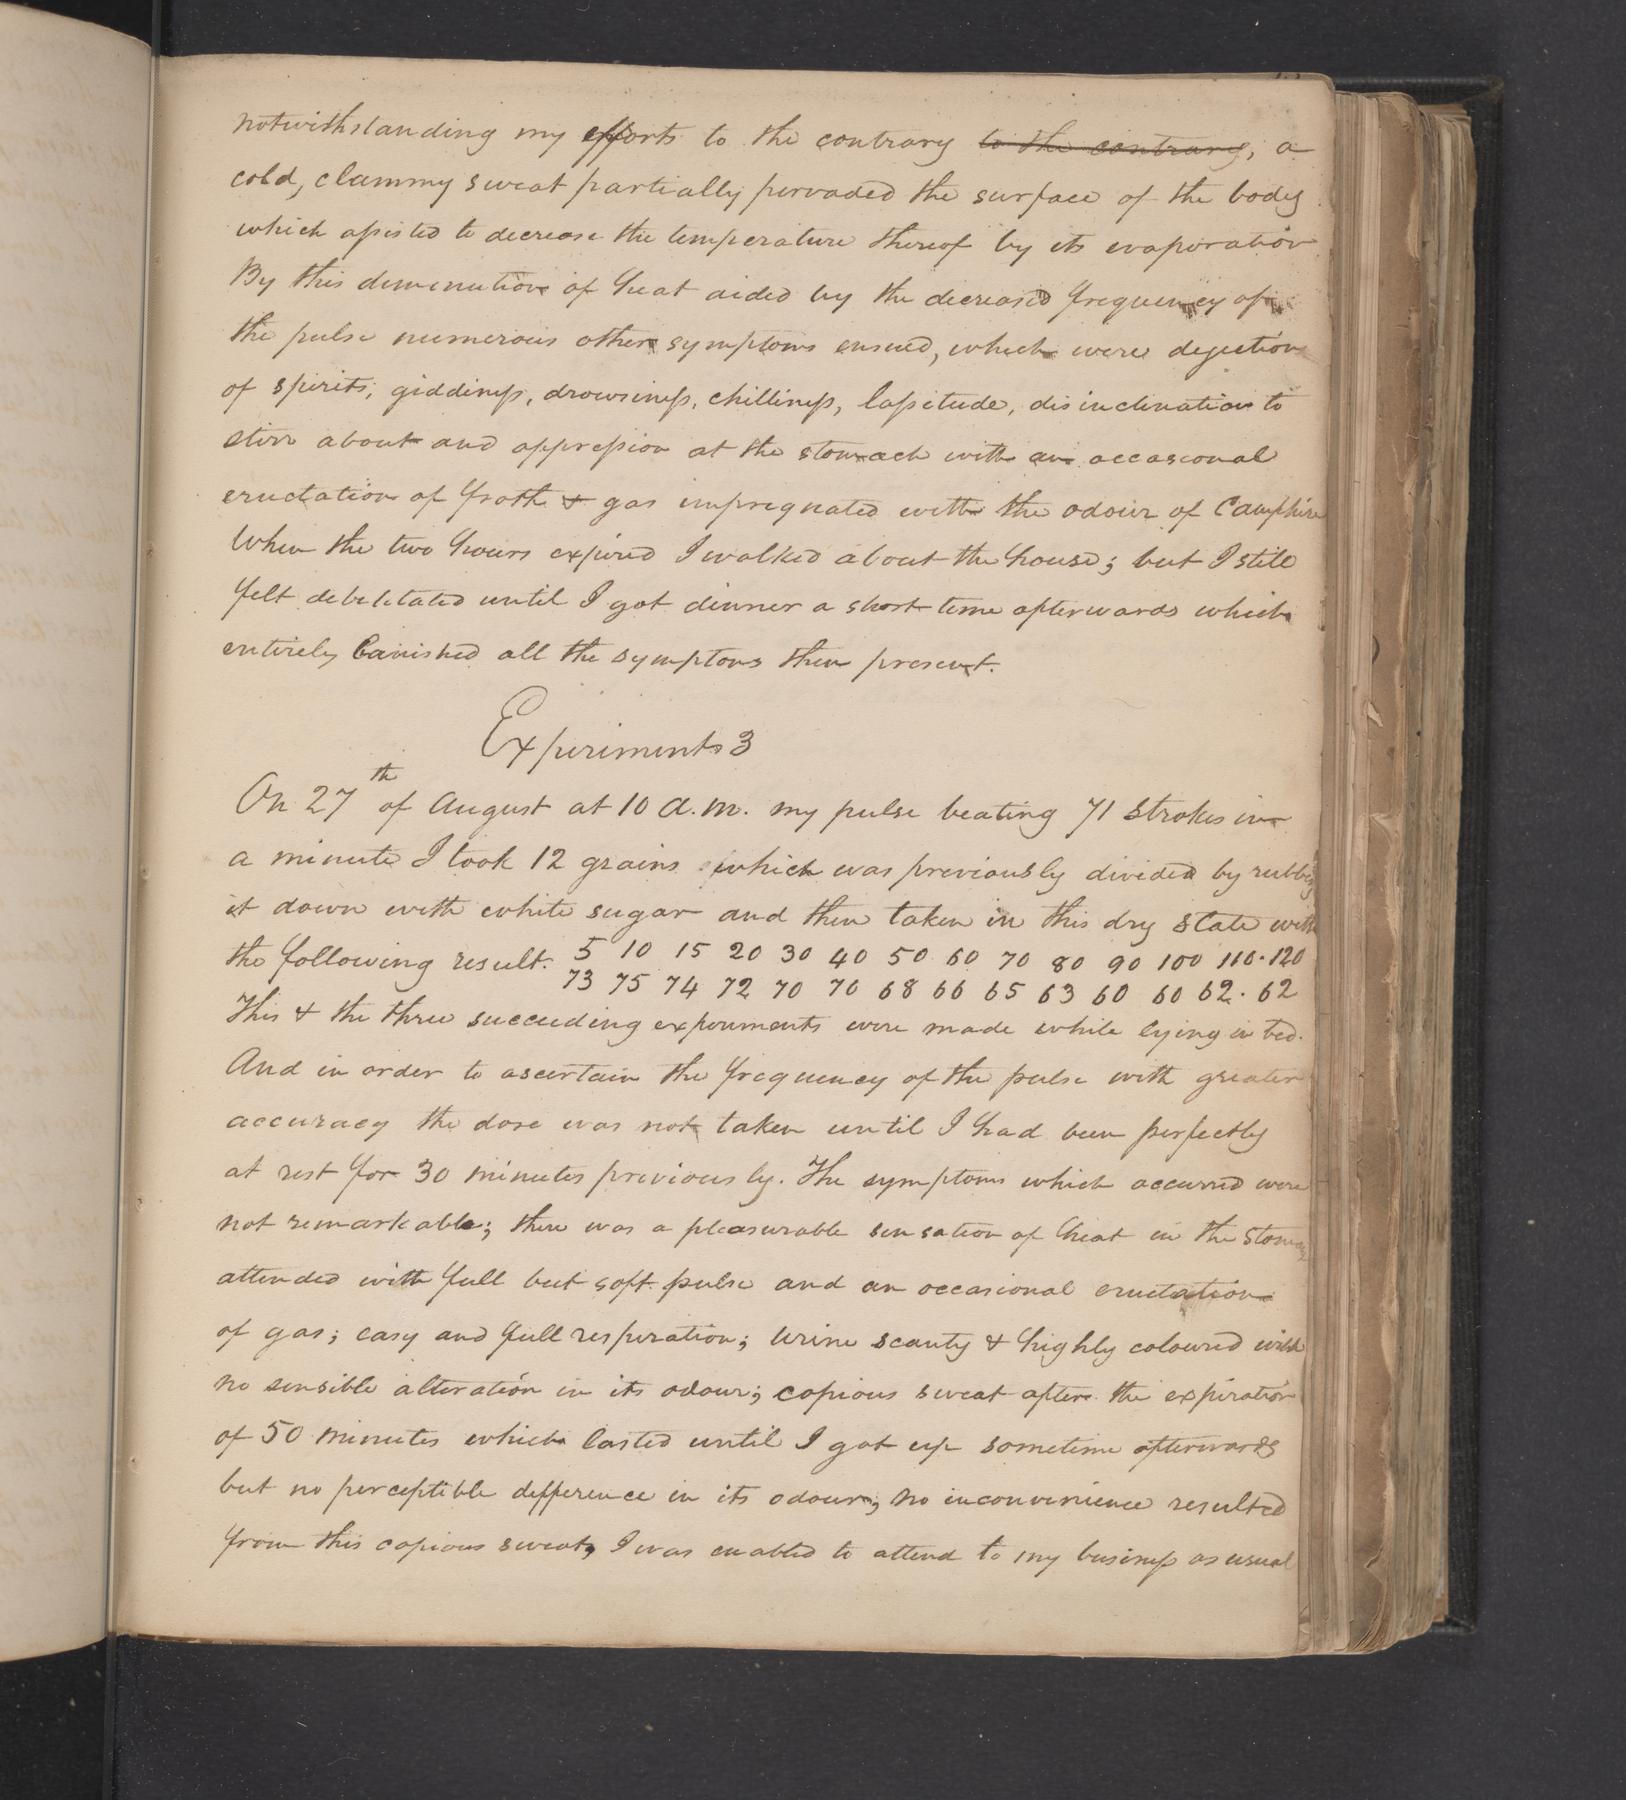 notwithstanding my efforts to the contrary to the contrary, a
cold, clammy sweat partially pervaded the surface of the body
which assisted to decrease the temperature thereof by its evaporation
By this diminution of heat aided by the decreased frequency of
the pulse numerous other symptoms ensued, which were dejection
of spirits, giddiness, drowsiness, chilliness, lassitude, disinclination to
stirr about and oppression at the stomach with an occasional
eructation of froth & gas impregnated with the odour of Camphire
When the two hours expired I walked about the house; but I still
felt debilitated until I got dinner a short time afterwards which
entirely banished all the symptoms then present.
Experiments 3
On 27th of August at 10 a.m. my pulse beating 71 strokes in
a minute I took 12 grains which was previously divided by rubbing
it down with white sugar and then taken in this dry state with
the following result. 5 10 15 20 30 40 50 60 70 80 90 100 110. 120
73 75 74 72 70 70 68 66 65 63 60 60 62. 62
This & the three succeeding experiments were made while lying in bed.
And in order to ascertain the frequency of the pulse with greater
accuracy the dose was not taken until I had been perfectly
at rest for 30 minutes previously. The symptoms which occurred were
not remarkable; there was a pleasurable sensation of heat in the stomach
attended with full but soft pulse and an occasional eructation
of gas; easy and full respiration; urine scanty & highly coloured with
no sensible alteration in its odour; copious sweat after the expiration
of 50 minutes which lasted until I got up sometime afterwards
but no perceptible difference in its odour; no inconvenience resulted
from this copious sweat, I was enabled to attend to my business as usual